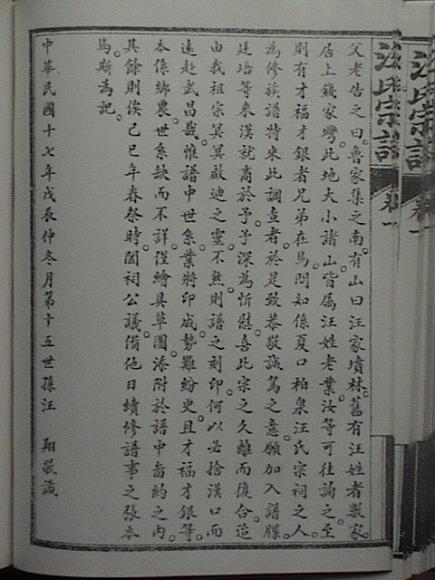 汪氏宗譜 卷一
汪氏宗譜 卷一
父老告之曰。魯家集之南。有山曰汪家墳林。舊有汪姓者數家。
居上錢家灣。此地大小諸山。皆屬汪姓老業。汝等可往詢之。至
則有才福才銀者兄弟在焉。問知係夏口柏泉汪氏宗祠之人。
為修族譜特來此調查者。於是致恭敬誠篤之意。願加入譜牒。
廷培等來漢就商於予。予深為忻慰。喜此宗之久離而復合。
由我祖宗冥冥啟迪之靈。不然。則譜之刻印。何以必捨漢口而
遠赴武昌哉。惟譜中世系。業將印成。勢難紛更。且才福才銀等
本係鄉農。世系缺而不詳。僅繪具草圖。添附於譜中約之內。
其餘則俟己巳年春祭時。開祠公議。備他日續修譜事之張本
焉。斯為記。
中華民國十七年戊辰仲冬月第十五世孫汪 翔敬識